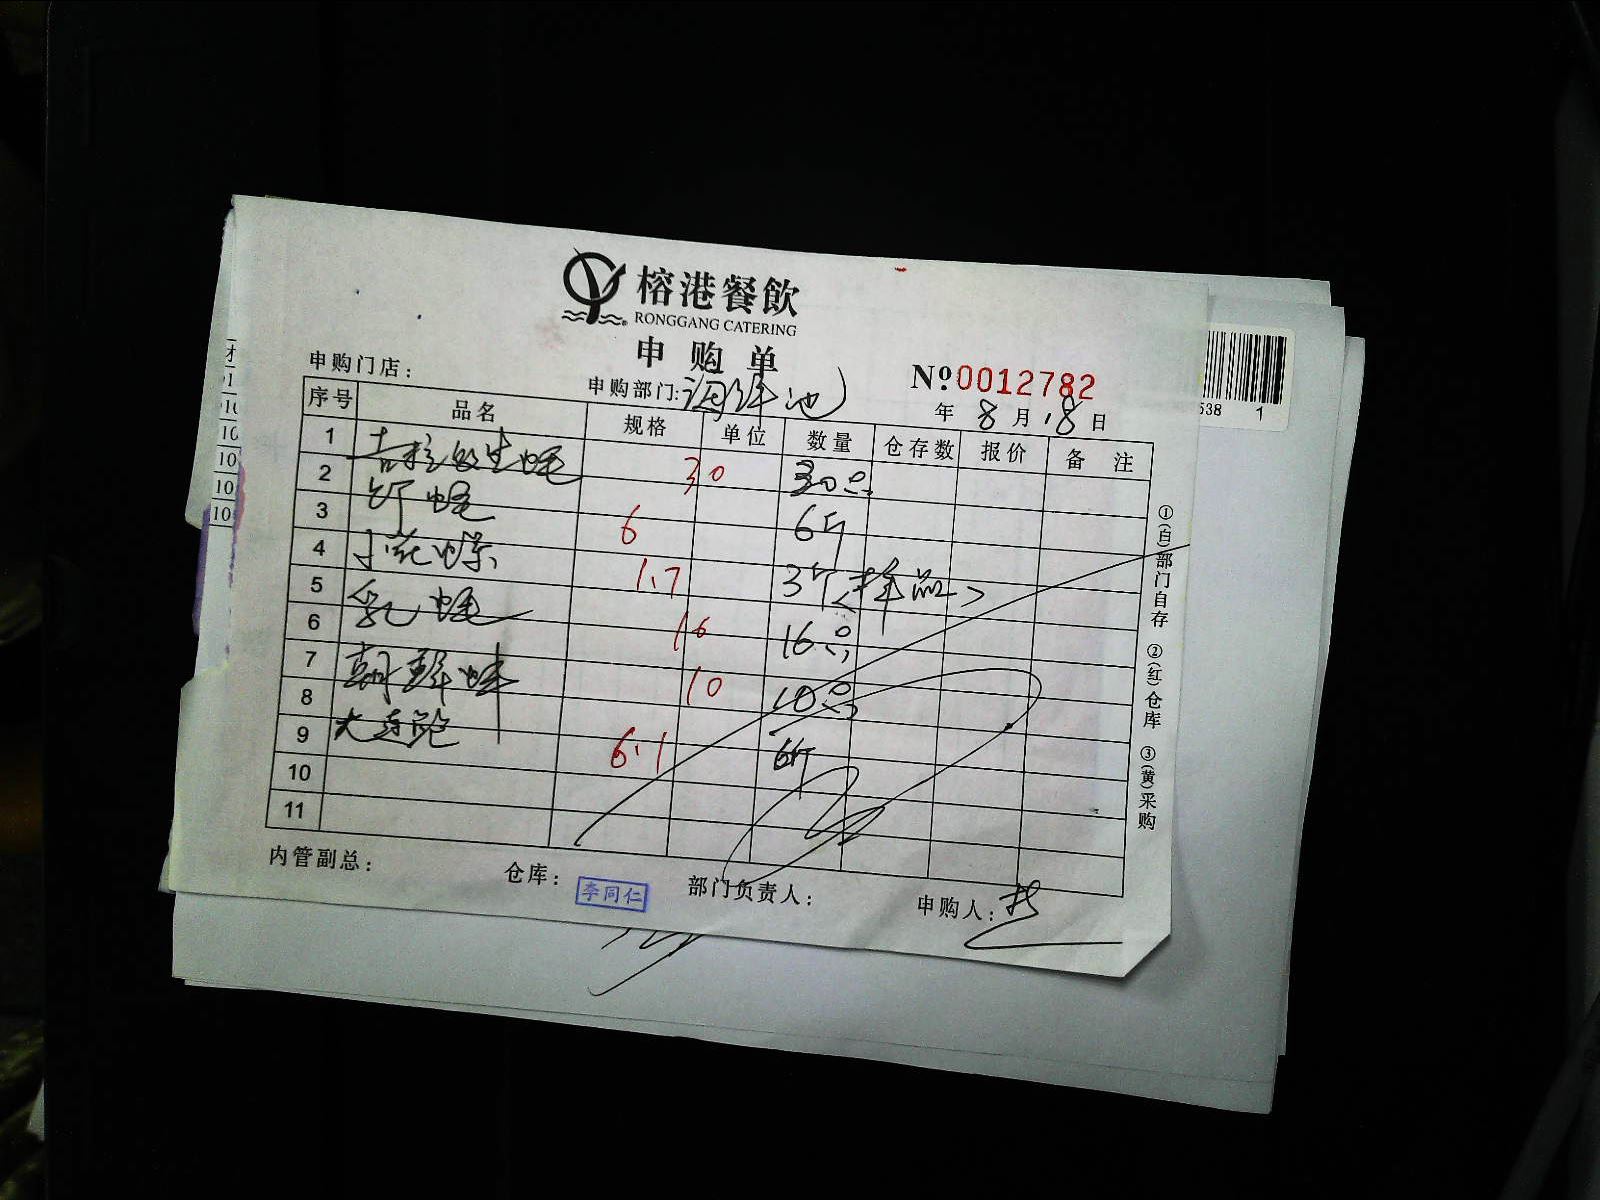 榕港餐飲
RONGGANG CATERING
申购单
申购门店：
申购部门：海鲜池
№0012782
年 8月18日
序号 品名 规格 单位 数量 仓存数 报价 备注
1 吉拉多生蚝 30 30只
2
3 竹蛏 6 6斤
4 小花螺 1.7 3斤<样品>
5 乳蚝 16 16只
6
7 朝鲜蚌 10 10只
8
9 大连鲍 6.1 6斤
10
11
①(白)部门自存 ②(红)仓库 ③(黄)采购
内管副总：
仓库：李同仁
部门负责人：
申购人：
538 1